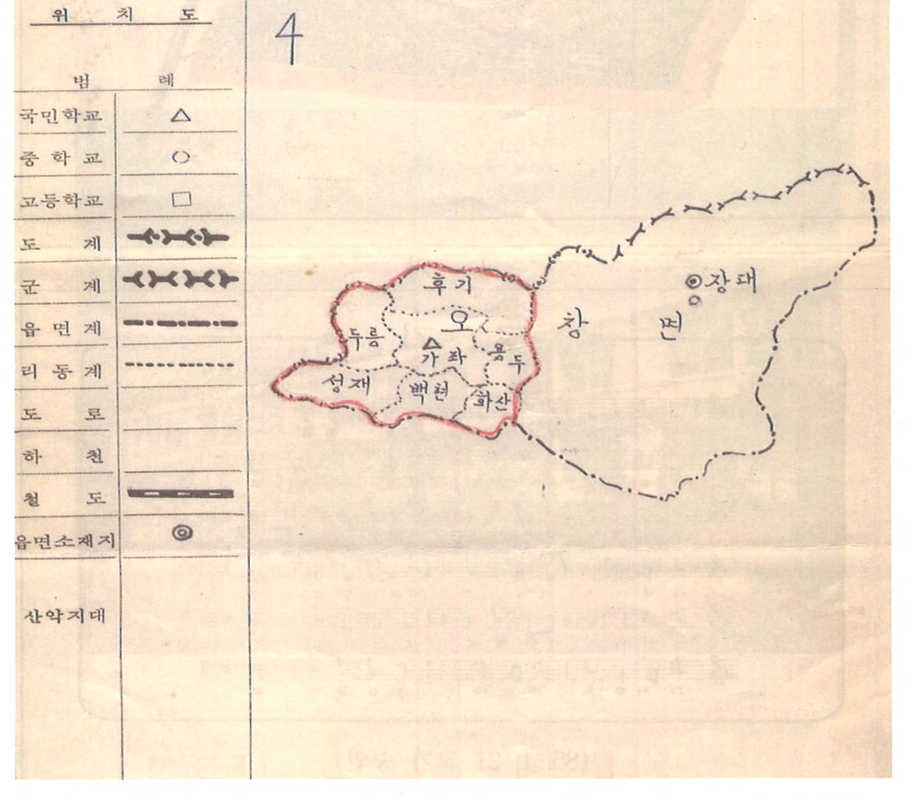 위 치 도
4
범 례
국민학교
중 학 교
고등학교
도 계
군 계
읍 면 계
리 동 계
도 로
하 천
철 도
읍면소재지
산악지대
후기
오 창 면
장대
두릉
가좌
용두
성재
백현
화산